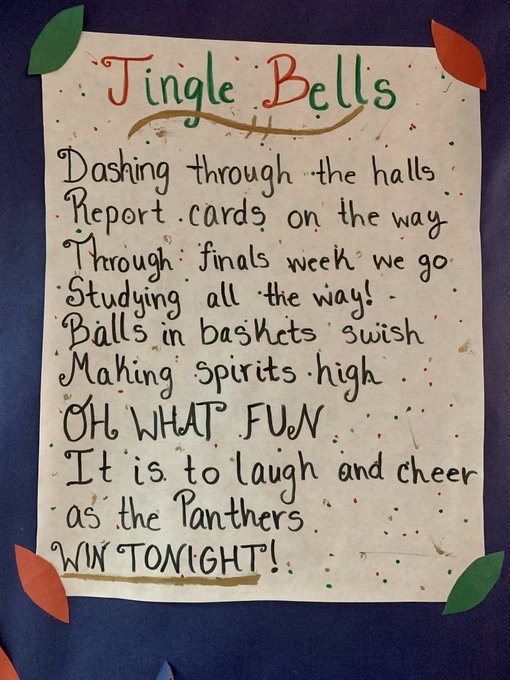 Jingle Bells
Dashing through the halls
Report cards on the way
Through finals week we go
Studying all the way!
Balls in baskets swish
Making spirits high
OH WHAT FUN
It is to laugh and cheer
as the Panthers
WIN TONIGHT!